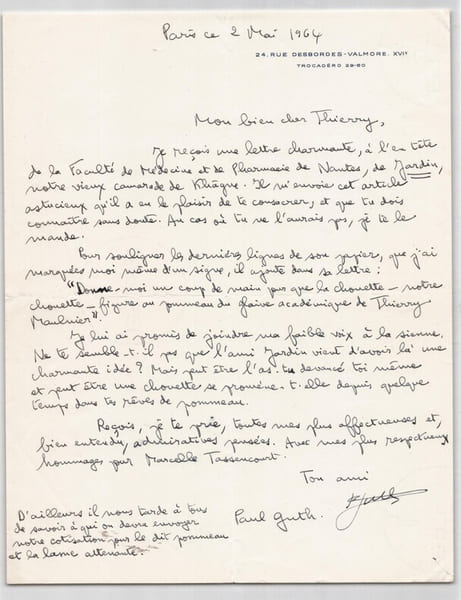 Paris ce 2 Mai 1964
24, RUE DESBORDES-VALMORE. XVIe
TROCADÉRO 29-60
Mon bien cher Thierry,
Je reçois une lettre charmante, à l'en tête
de la Faculté de Médecine et de Pharmacie de Nantes, de Jardin,
notre vieux camarade de Khâgne. Il m'envoie cet article
astucieux qu'il a eu le plaisir de te consacrer, et que tu dois
connaître sans doute. Au cas où tu ne l'aurais pas, je te le
mande.
Pour souligner les dernières lignes de son papier, que j'ai
marquées moi même d'un signe, il ajoute dans sa lettre :
"Donne-moi un coup de main pour que la chouette - notre
chouette - figure au pommeau du glaive académique de Thierry
Maulnier".
Je lui ai promis de joindre ma faible voix à la sienne.
Ne te semble-t-il pas que l'ami Jardin vient d'avoir là une
charmante idée ? Mais peut être l'as-tu devancé toi même
et peut être une chouette se promène-t-elle depuis quelque
temps dans tes rêves de pommeau.
Reçois, je te prie, toutes mes plus affectueuses et,
bien entendu, admiratives pensées. Avec mes plus respectueux
hommages pour Marcelle Tassencourt.
Ton ami
Paul Guth.
D'ailleurs il nous tarde à tous
de savoir à qui on devra envoyer
notre cotisation pour le dit pommeau
et la lame attenante.